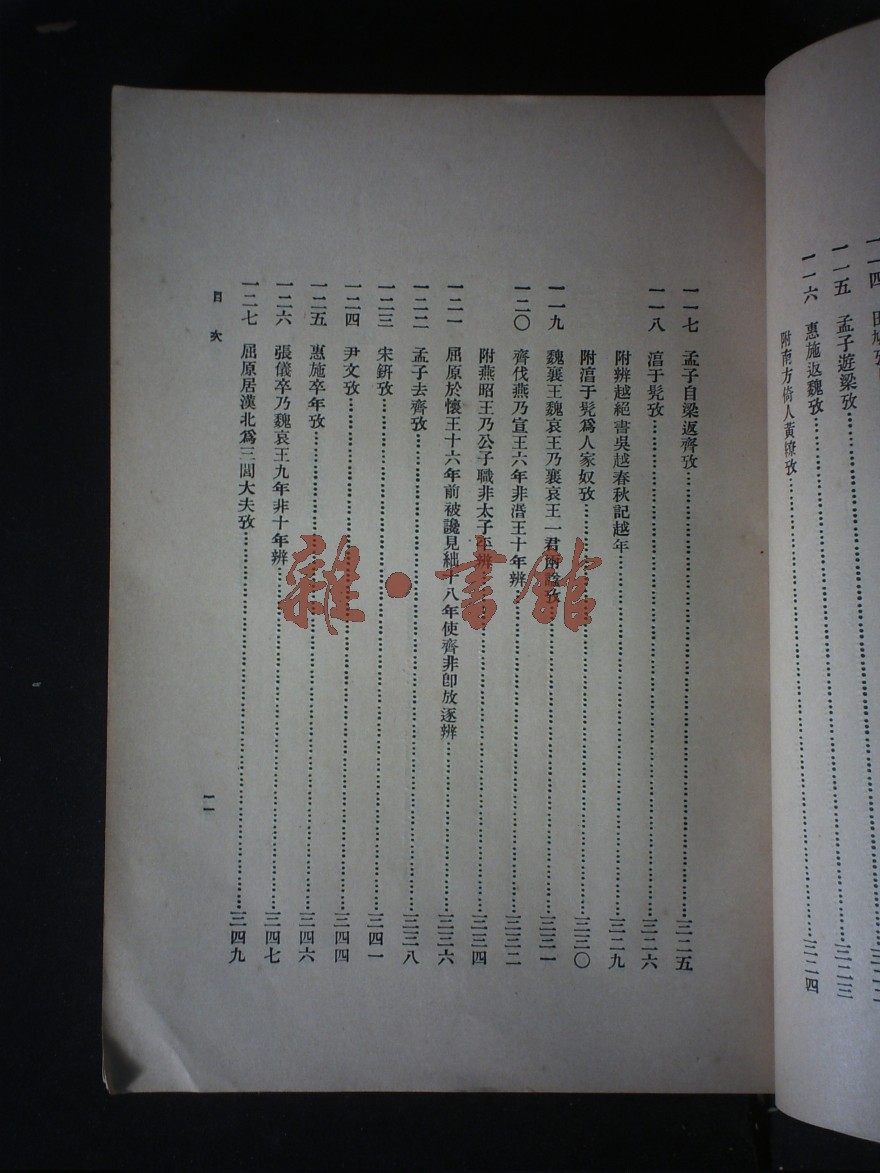 一一四 田鳩攷
一一五 孟子遊梁攷……三二三
一一六 惠施返魏攷……三二四
附南方倚人黃繚攷
一一七 孟子自梁返齊攷……三二五
一一八 淳于髡攷……三二六
附辨越絕書吳越春秋記越年……三二九
附淳于髡爲人家奴攷……三三〇
一一九 魏襄王魏哀王乃襄哀王一君兩諡攷……三三一
一二〇 齊伐燕乃宣王六年非湣王十年辨……三三二
附燕昭王乃公子職非太子平辨……三三四
一二一 屈原於懷王十六年前被讒見絀十八年使齊非卽放逐辨……三三六
一二二 孟子去齊攷……三三八
一二三 宋鈃攷……三四一
一二四 尹文攷……三四四
一二五 惠施卒年攷……三四六
一二六 張儀卒乃魏哀王九年非十年辨……三四七
一二七 屈原居漢北爲三閭大夫攷……三四九
目次
一一
雜·書館